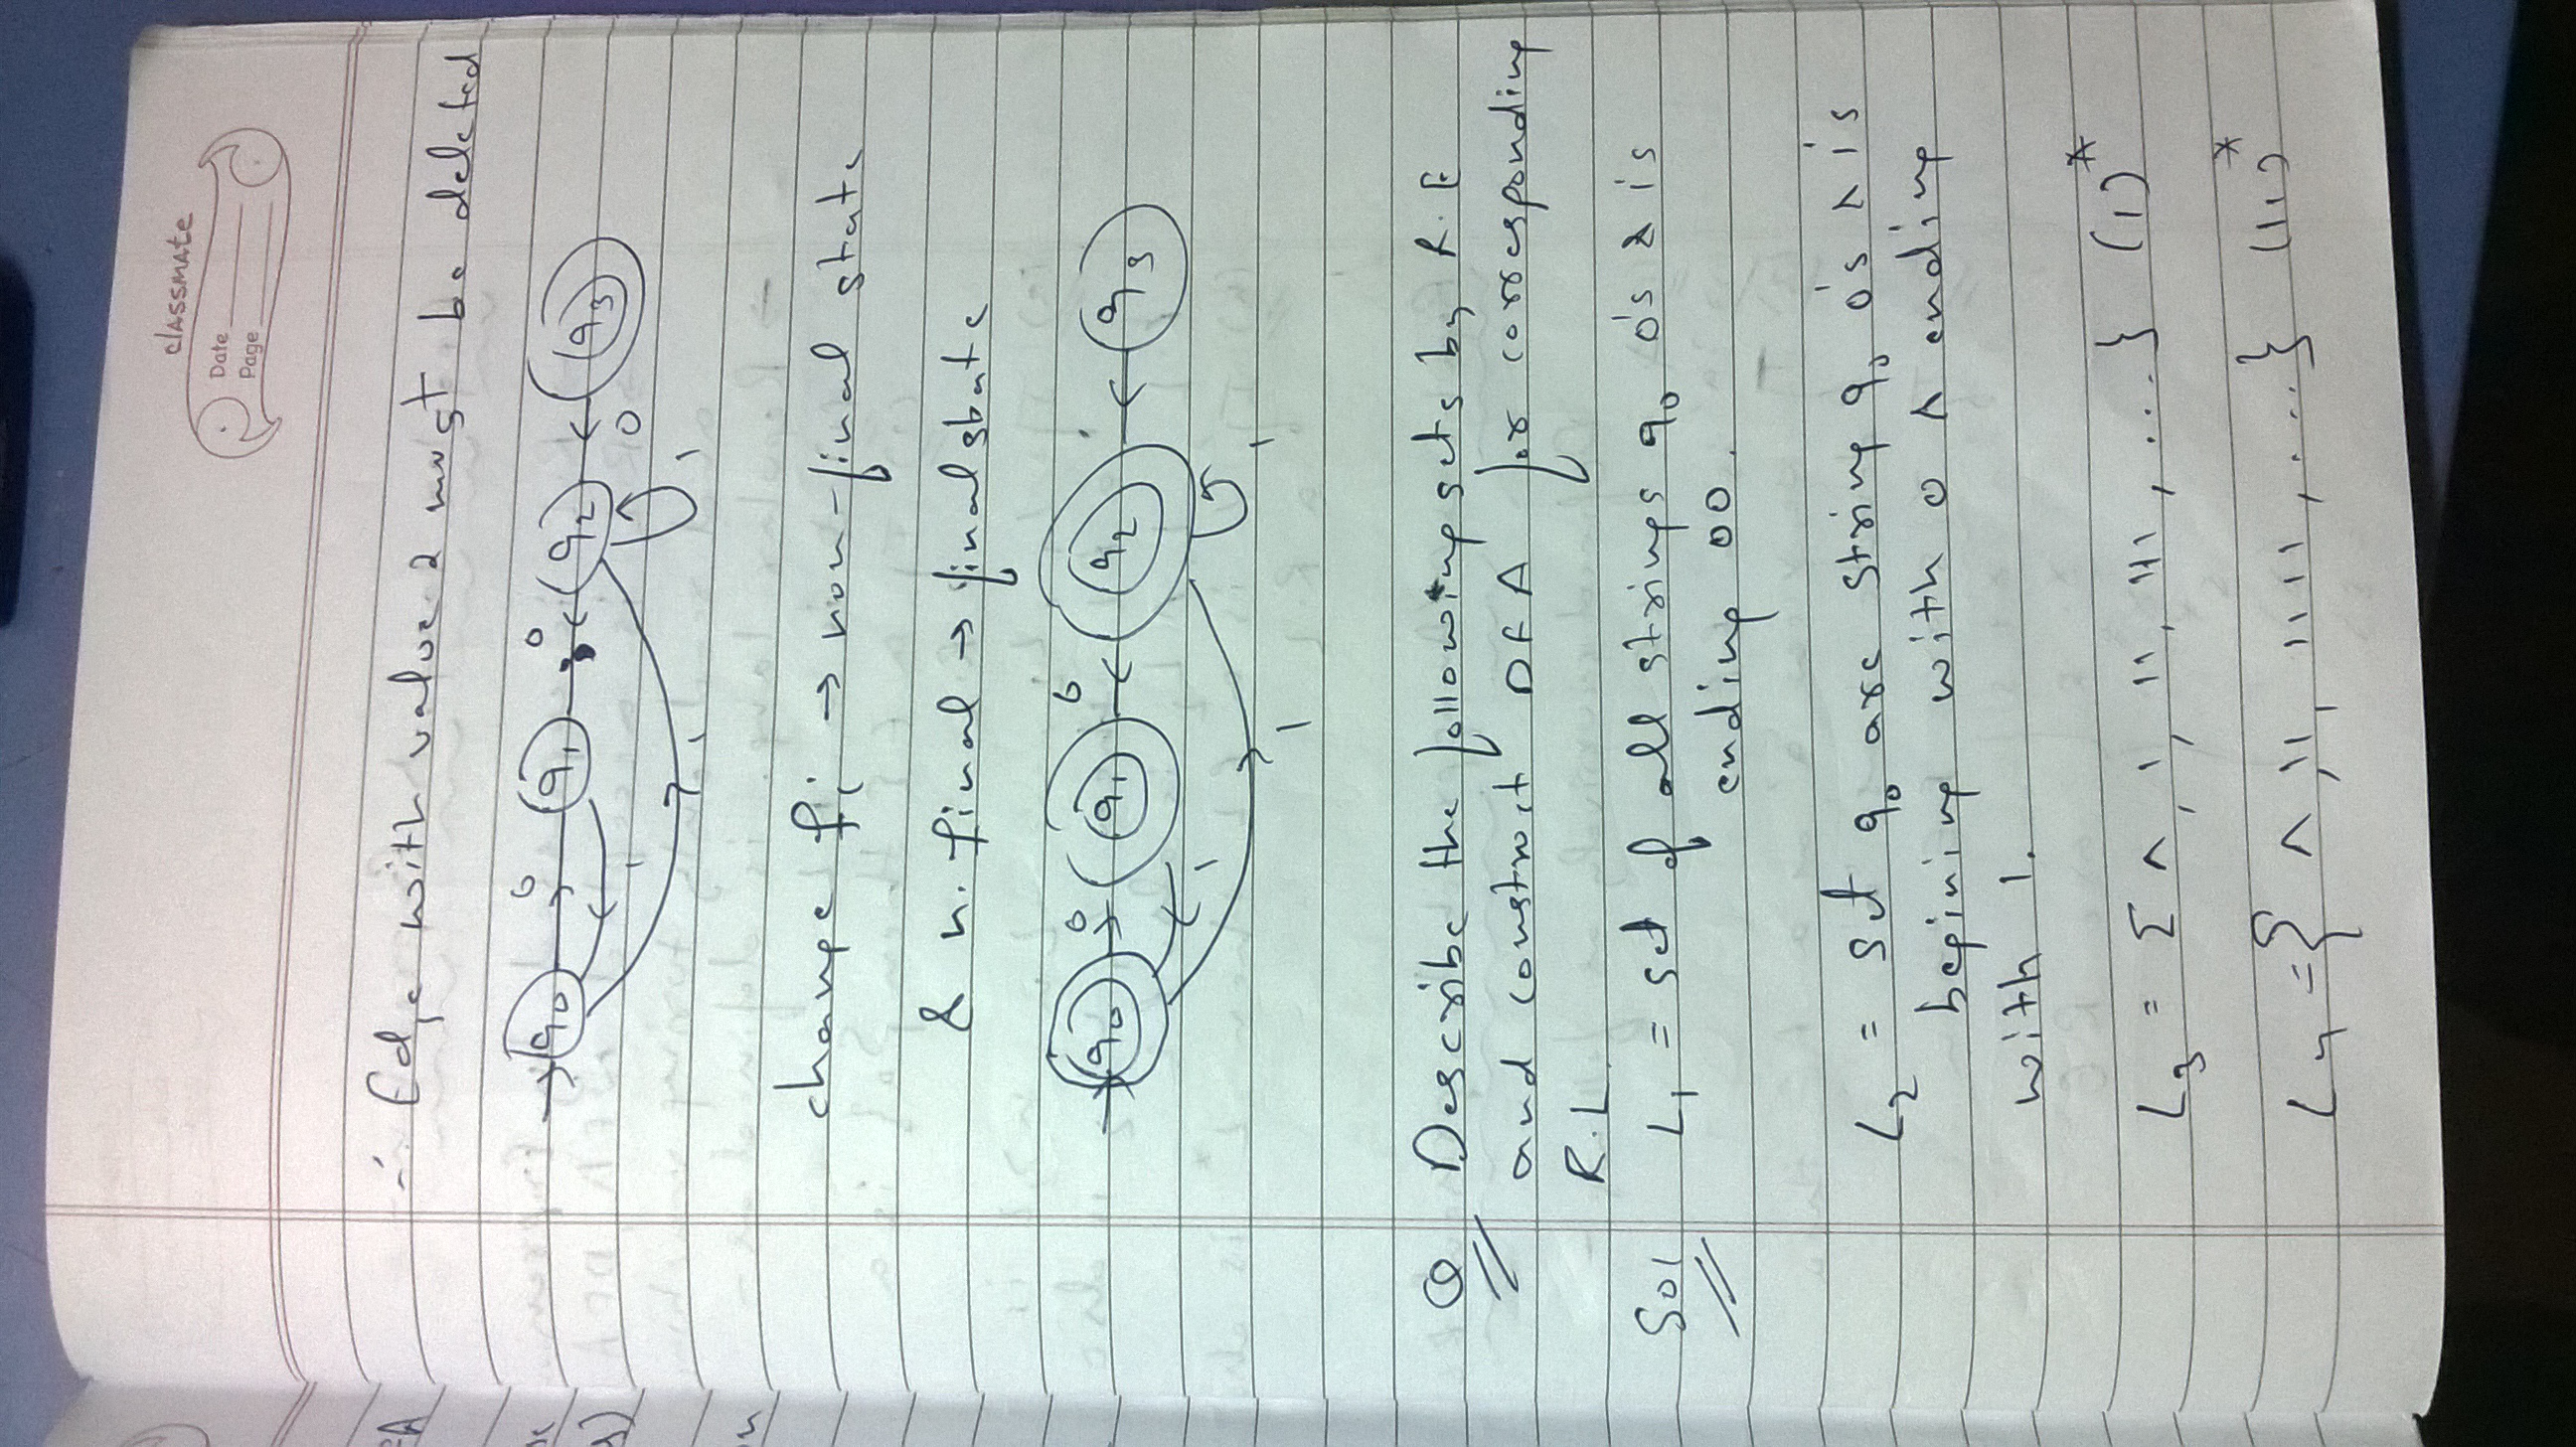 classmate
Date
Page
∴ Edge with value 2 must be deleted
→ q0 0 q1 0 q2 q3
1 0
1 1
change fi → non-final state
& n. final → final state
→ q0 0 q1 0 q2 q3
1
1 1
Q Describe the following sets by R.E
and construct DFA for corresponding
R.L.
Sol L1 = set of all strings q0 0's & 1s
ending 00.
L2 = set q0 are string q0 0's ∧ 1s
begining with 0 ∧ ending
with 1.
L3 = { ∧, 1, 11, 111, ... } (1)*
L4 = { ∧, 11, 1111, ... } (11)*